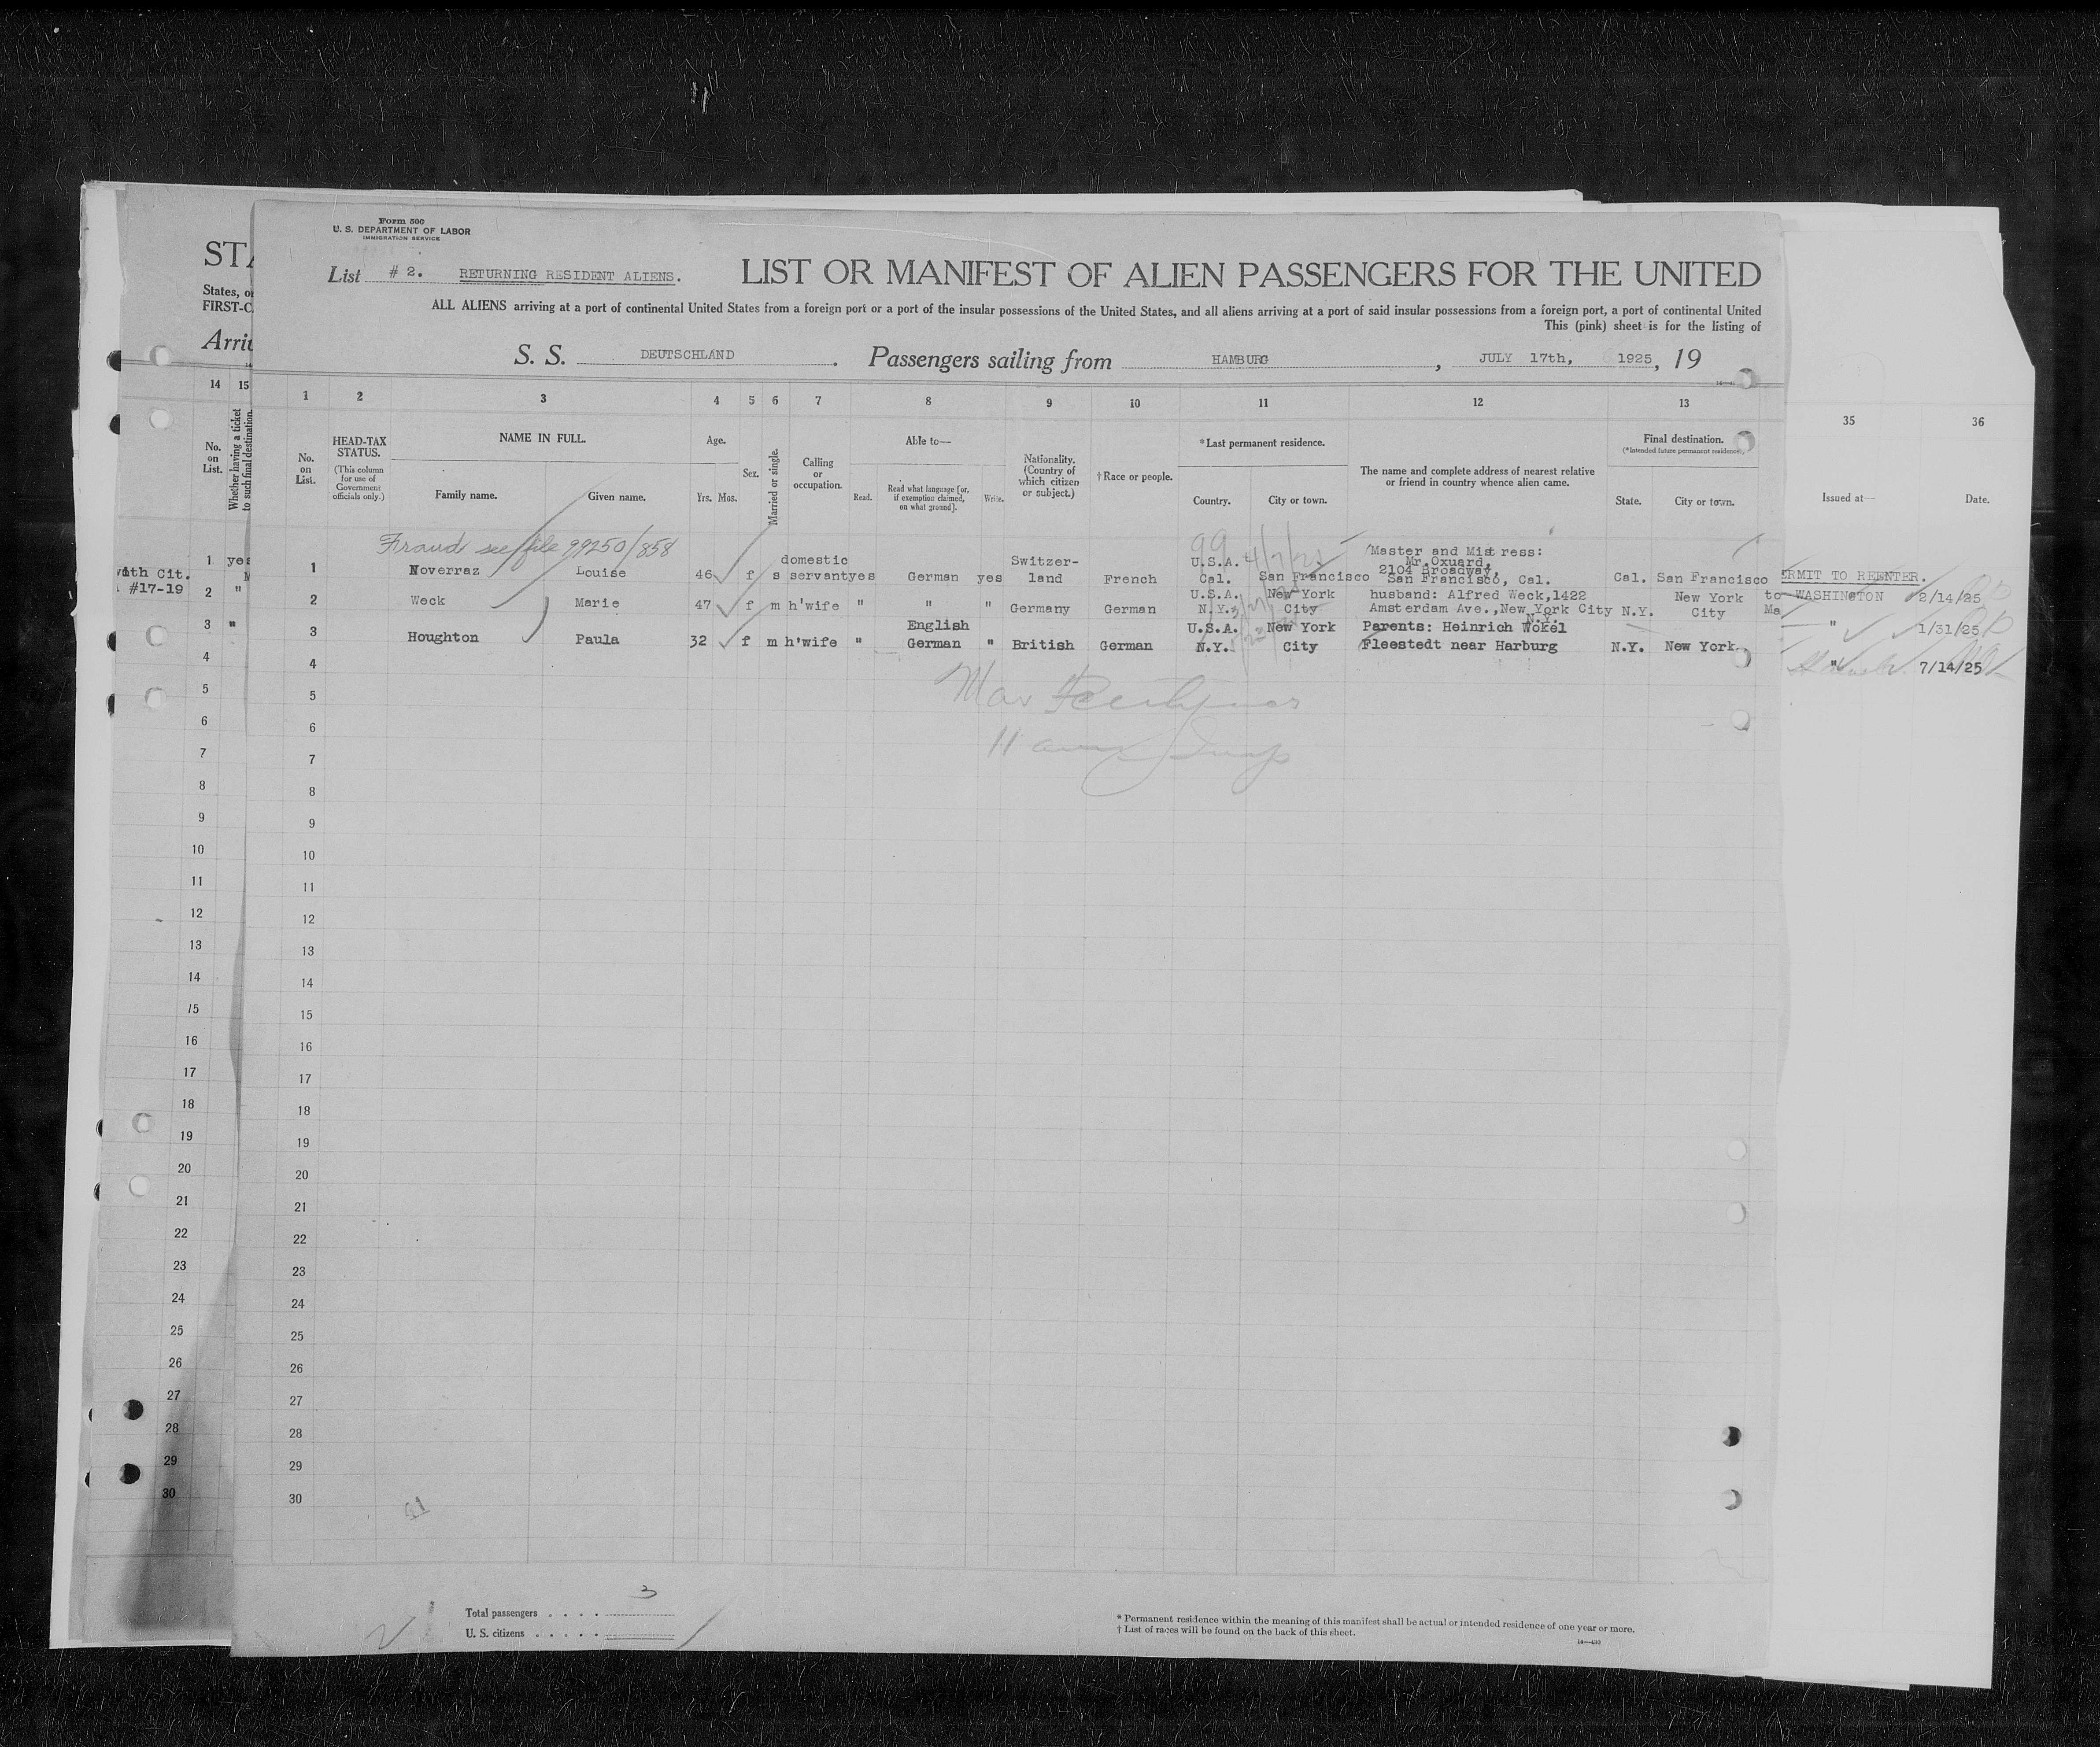 Form 500
U. S. DEPARTMENT OF LABOR
IMMIGRATION SERVICE
List # 2. RETURNING RESIDENT ALIENS. LIST OR MANIFEST OF ALIEN PASSENGERS FOR THE UNITED
ALL ALIENS arriving at a port of continental United States from a foreign port or a port of the insular possessions of the United States, and all aliens arriving at a port of said insular possessions from a foreign port, a port of continental United
This (pink) sheet is for the listing of
S. S. DEUTSCHLAND. Passengers sailing from HAMBURG, JULY 17th, 1925, 19
STA
States, or
FIRST-C
Arriv
14 15
No. on List.
Whether having a ticket to such final destination.
1 2 3 4 5 6 7 8 9 10 11 12 13
35 36
No. on List.
HEAD-TAX STATUS.
(This column for use of Government officials only.)
NAME IN FULL.
Family name. Given name.
Age.
Yrs. Mos.
Sex.
Married or single.
Calling or occupation.
Able to—
Read. Read what language [or, if exemption claimed, on what ground]. Write.
Nationality. (Country of which citizen or subject.)
†Race or people.
*Last permanent residence.
Country. City or town.
The name and complete address of nearest relative or friend in country whence alien came.
Final destination.
(*Intended future permanent residence.)
State. City or town.
Issued at— Date.
Fraud see file 99250/858
99 4/7/25
1 yes
1 Noverraz Louise 46 f s domestic servant yes German yes Switzer-land French U.S.A. Cal. San Francisco Master and Mistress: Mr. Oxuard, 2104 Broadway, San Francisco, Cal. Cal. San Francisco
ERMIT TO REENTER.
WASHINGTON 2/14/25
with Cit.
#17-19
2 "
2 Weck Marie 47 f m h'wife " " " Germany German U.S.A. N.Y. New York City husband: Alfred Weck,1422 Amsterdam Ave.,New York City N.Y. N.Y. New York City
to
Ma
" 1/31/25
3 "
3 Houghton Paula 32 f m h'wife " English German " British German U.S.A. N.Y. New York City Parents: Heinrich Wökel Fleestedt near Harburg N.Y. New York
" 7/14/25
4 4
5 5
6 6
7 7
8 8
9 9
10 10
11 11
12 12
13 13
14 14
15 15
16 16
17 17
18 18
19 19
20 20
21 21
22 22
23 23
24 24
25 25
26 26
27 27
28 28
29 29
30 30
41
Total passengers . . . . 3
U. S. citizens . . . . .
* Permanent residence within the meaning of this manifest shall be actual or intended residence of one year or more.
† List of races will be found on the back of this sheet.
14—490